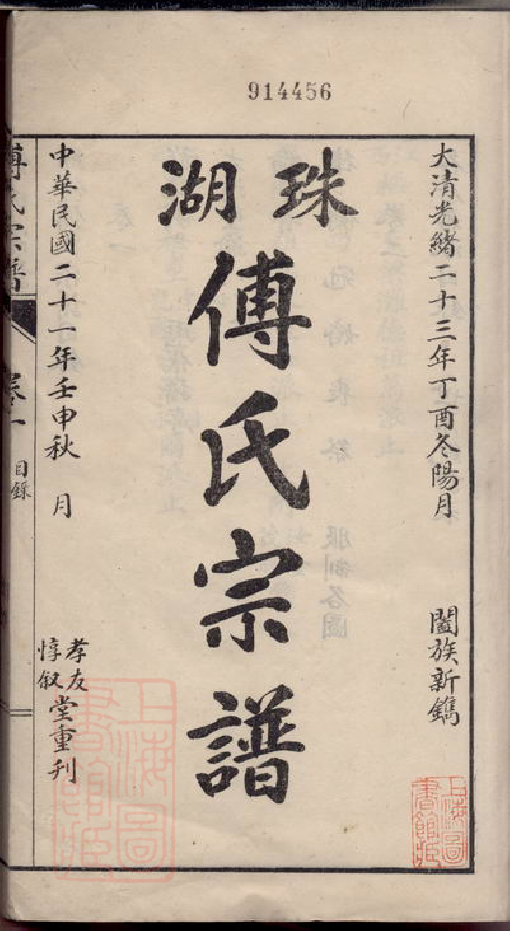 914456
大清光緒二十三年丁酉冬陽月 闔族新鐫
珠湖
傅氏宗譜
中華民國二十一年壬申秋月
孝友
惇敘
堂重刊
傅氏宗譜
卷一
目錄
上海圖書館藏
上海圖書館藏